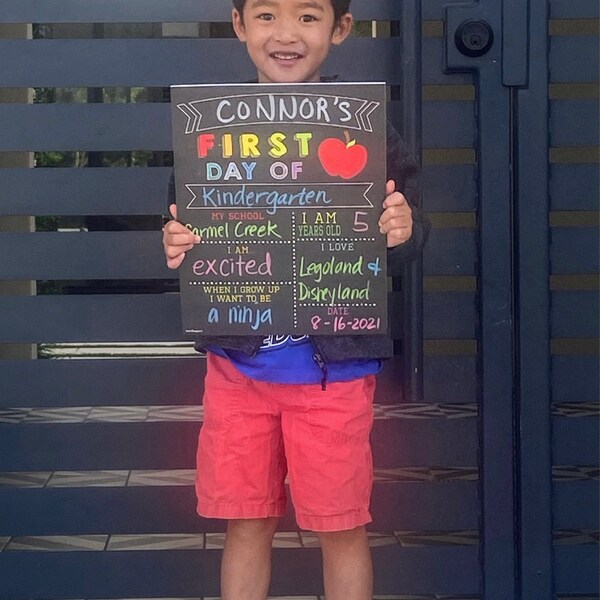 CONNOR'S
FIRST
DAY OF
Kindergarten
MY SCHOOL
Carmel Creek
I AM
YEARS OLD 5
I AM
excited
I LOVE
Legoland &
Disneyland
WHEN I GROW UP
I WANT TO BE
a ninja
DATE
8-16-2021